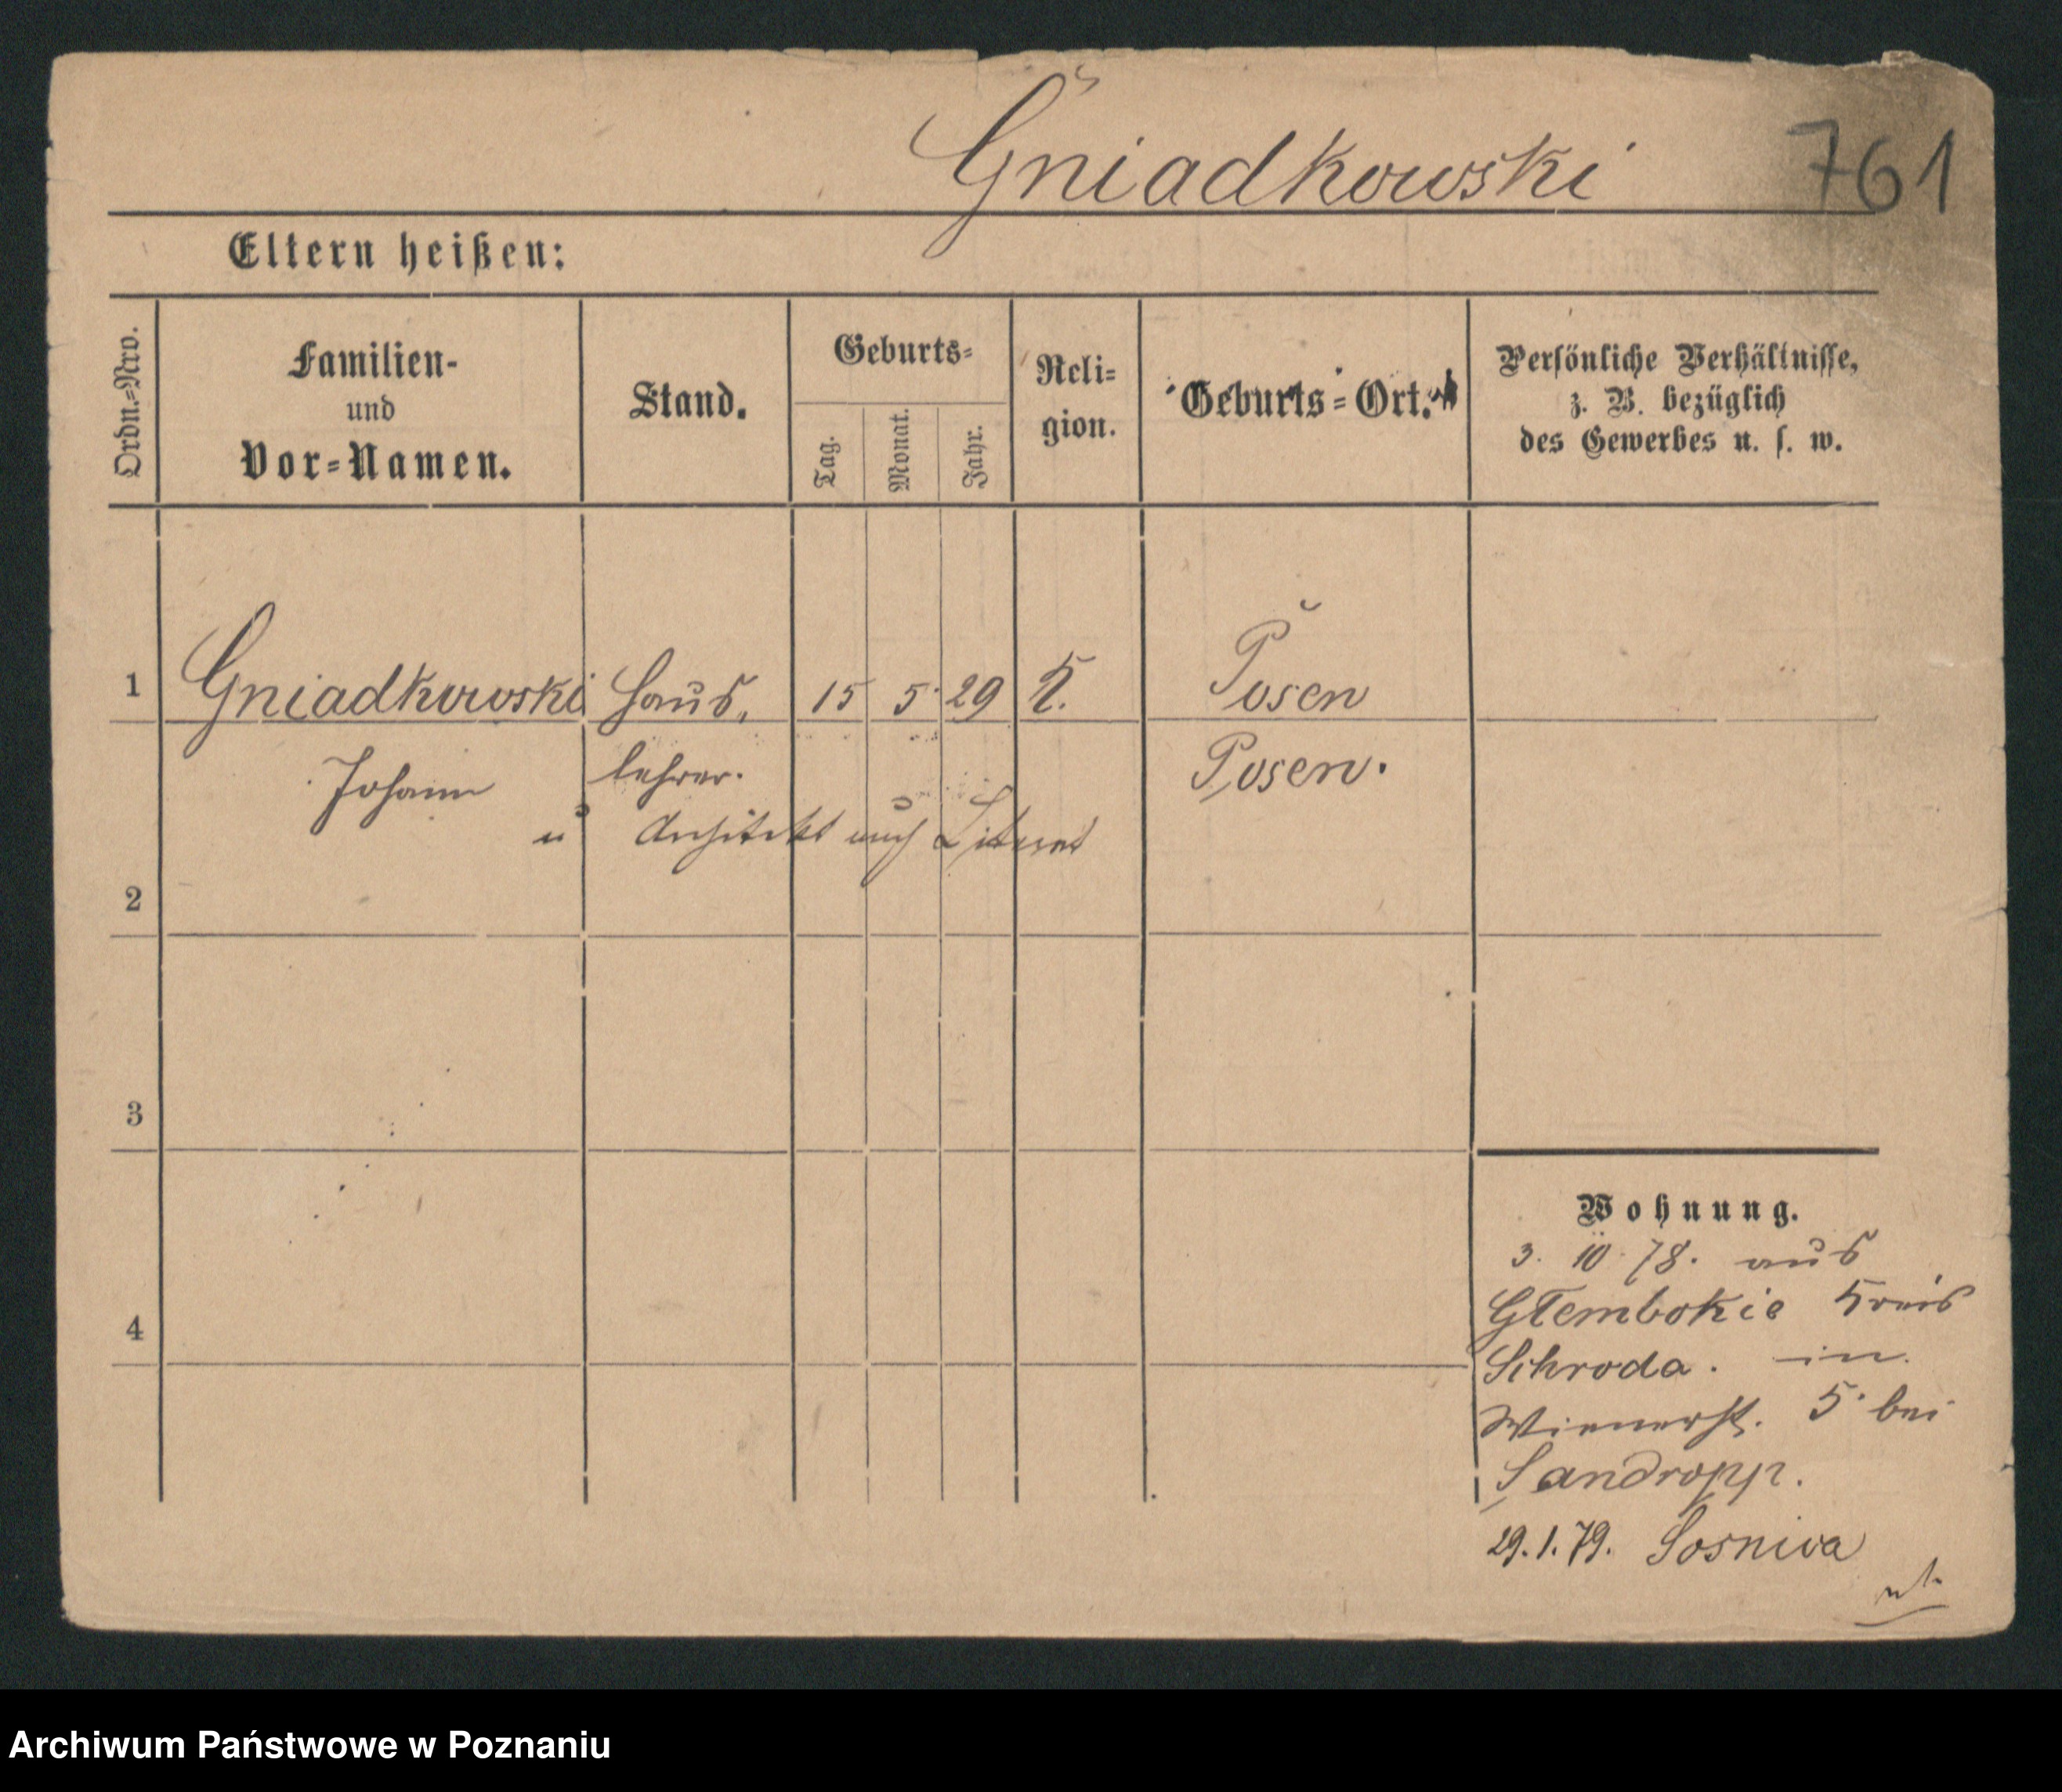 Gniadkowski 761
Eltern heißen:
Ordn.-Nro.
Familien-
und
Vor-Namen.
Stand.
Geburts-
Tag.
Monat.
Jahr.
Reli-
gion.
Geburts-Ort.
Persönliche Verhältnisse,
z. B. bezüglich
des Gewerbes u. s. w.
1 Gniadkowski Haus, 15 5 29 K. Posen
Johann lehrer. Posen.
u Architekt auch Literat
2
3
4
Wohnung.
3. 10. 78. aus
Głembokie Kreis
Schroda. in
Wienerst. 5 bei
Sandropp.
29.1.79. Sosnica
Archiwum Państwowe w Poznaniu